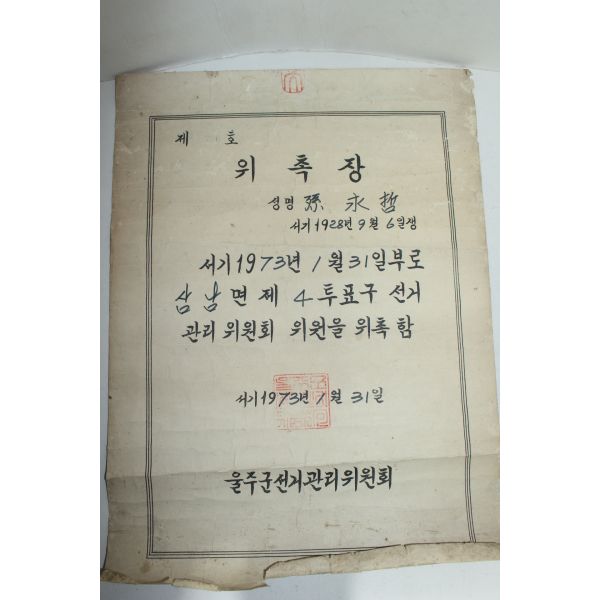 제 호
위촉장
성명 孫 永 哲
서기 1928년 9월 6일생
서기 1973년 1월 31일부로
삼남면 제 4 투표구 선거
관리위원회 위원을 위촉함
서기 1973년 1월 31일
울주군선거관리위원회